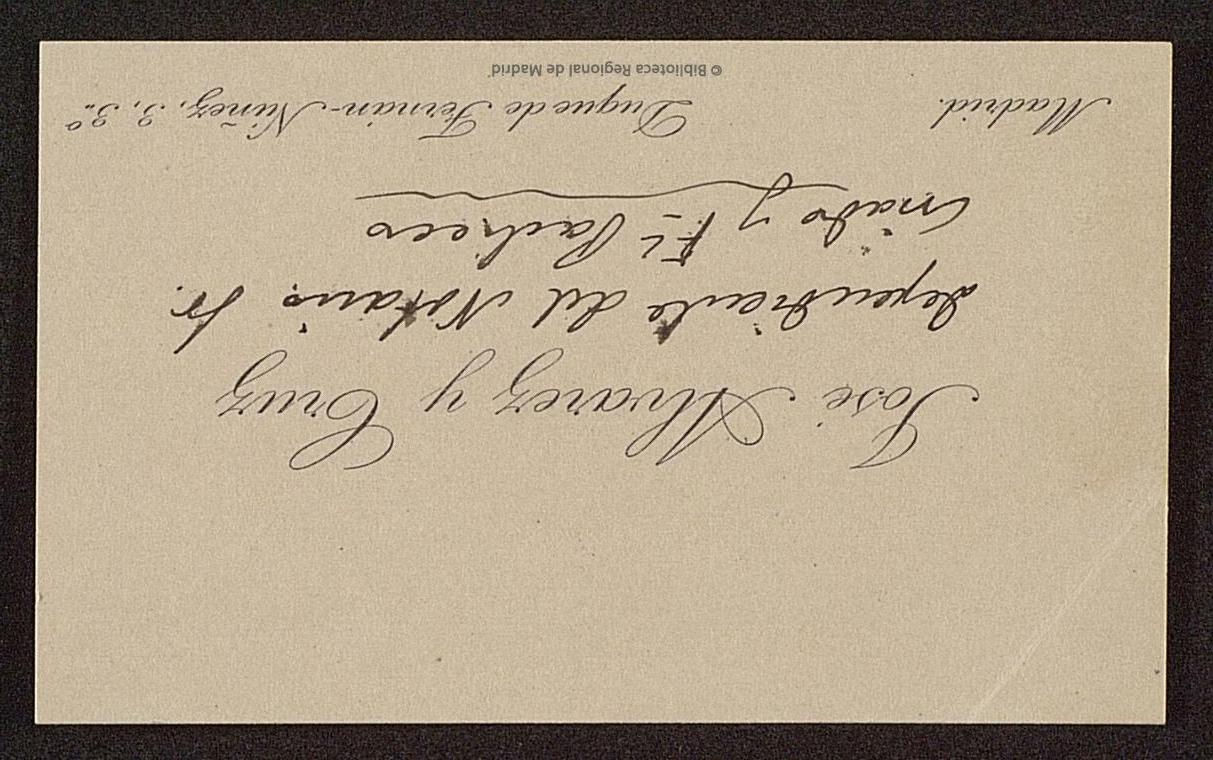 José Alvarez y Cruz
dependiente del Notario Sr.
Criado y Fz Pacheco
Madrid. Duque de Fernán-Núñez, 3, 3.º
© Biblioteca Regional de Madrid